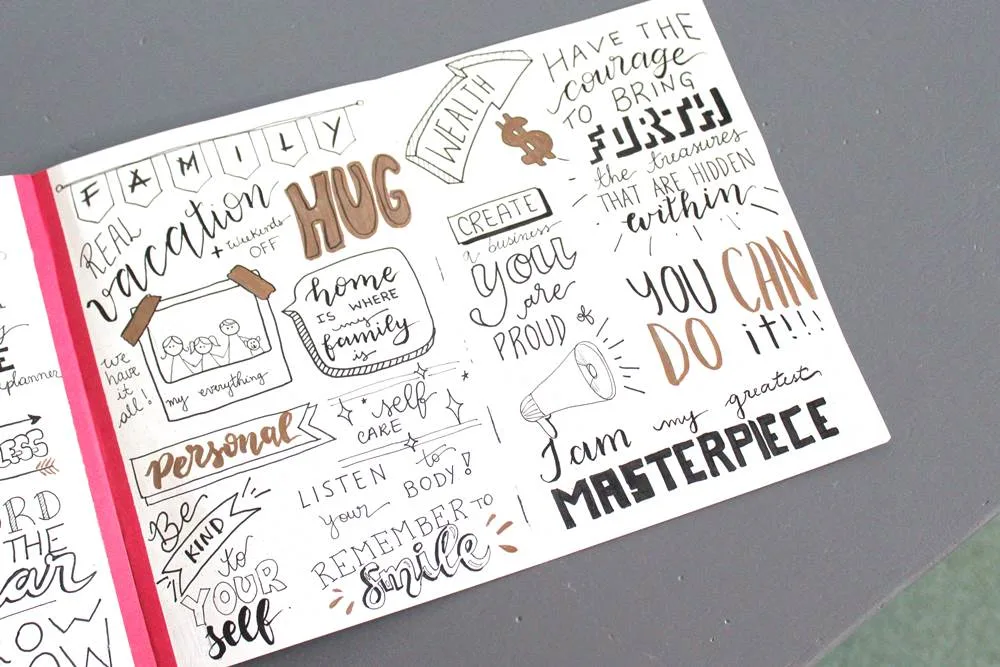 E
planner
LESS
RD
THE
ar
OW
OW
FAMILY
REAL
vacation
+ Weekends
OFF
HUG
home
IS WHERE
my
family
is
we
have
it
all!
my everything
Personal
self
CARE
Be
KIND
to
YOUR
self
LISTEN to
your BODY!
REMEMBER TO
smile
WEALTH
$
HAVE THE
courage
TO BRING
FORTH
the treasures
THAT ARE HIDDEN
within
CREATE
a business
you
are
PROUD of
YOU CAN
DO it!!!
I am my greatest
MASTERPIECE